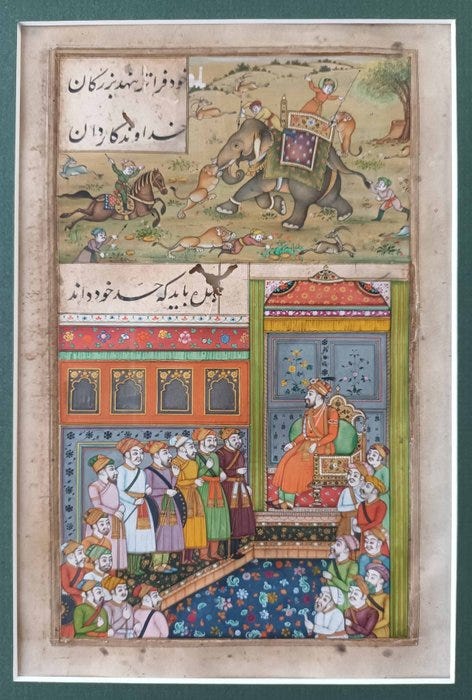 خود فراتر ننهد بزرکان
خداوند کاردان
باید که حد خود داند